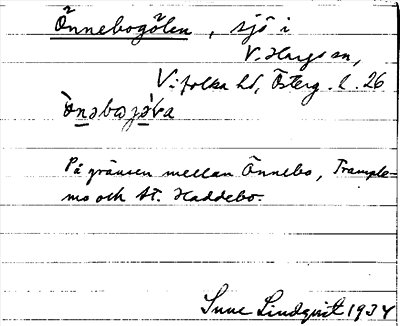 Önnebogölen, sjö i
V. Hargs sn,
Vifolka hd, Österg. l. 26
På gränsen mellan Önnebo, Trample-
mo och St. Haddebo.
Sune Lindqvist 1934